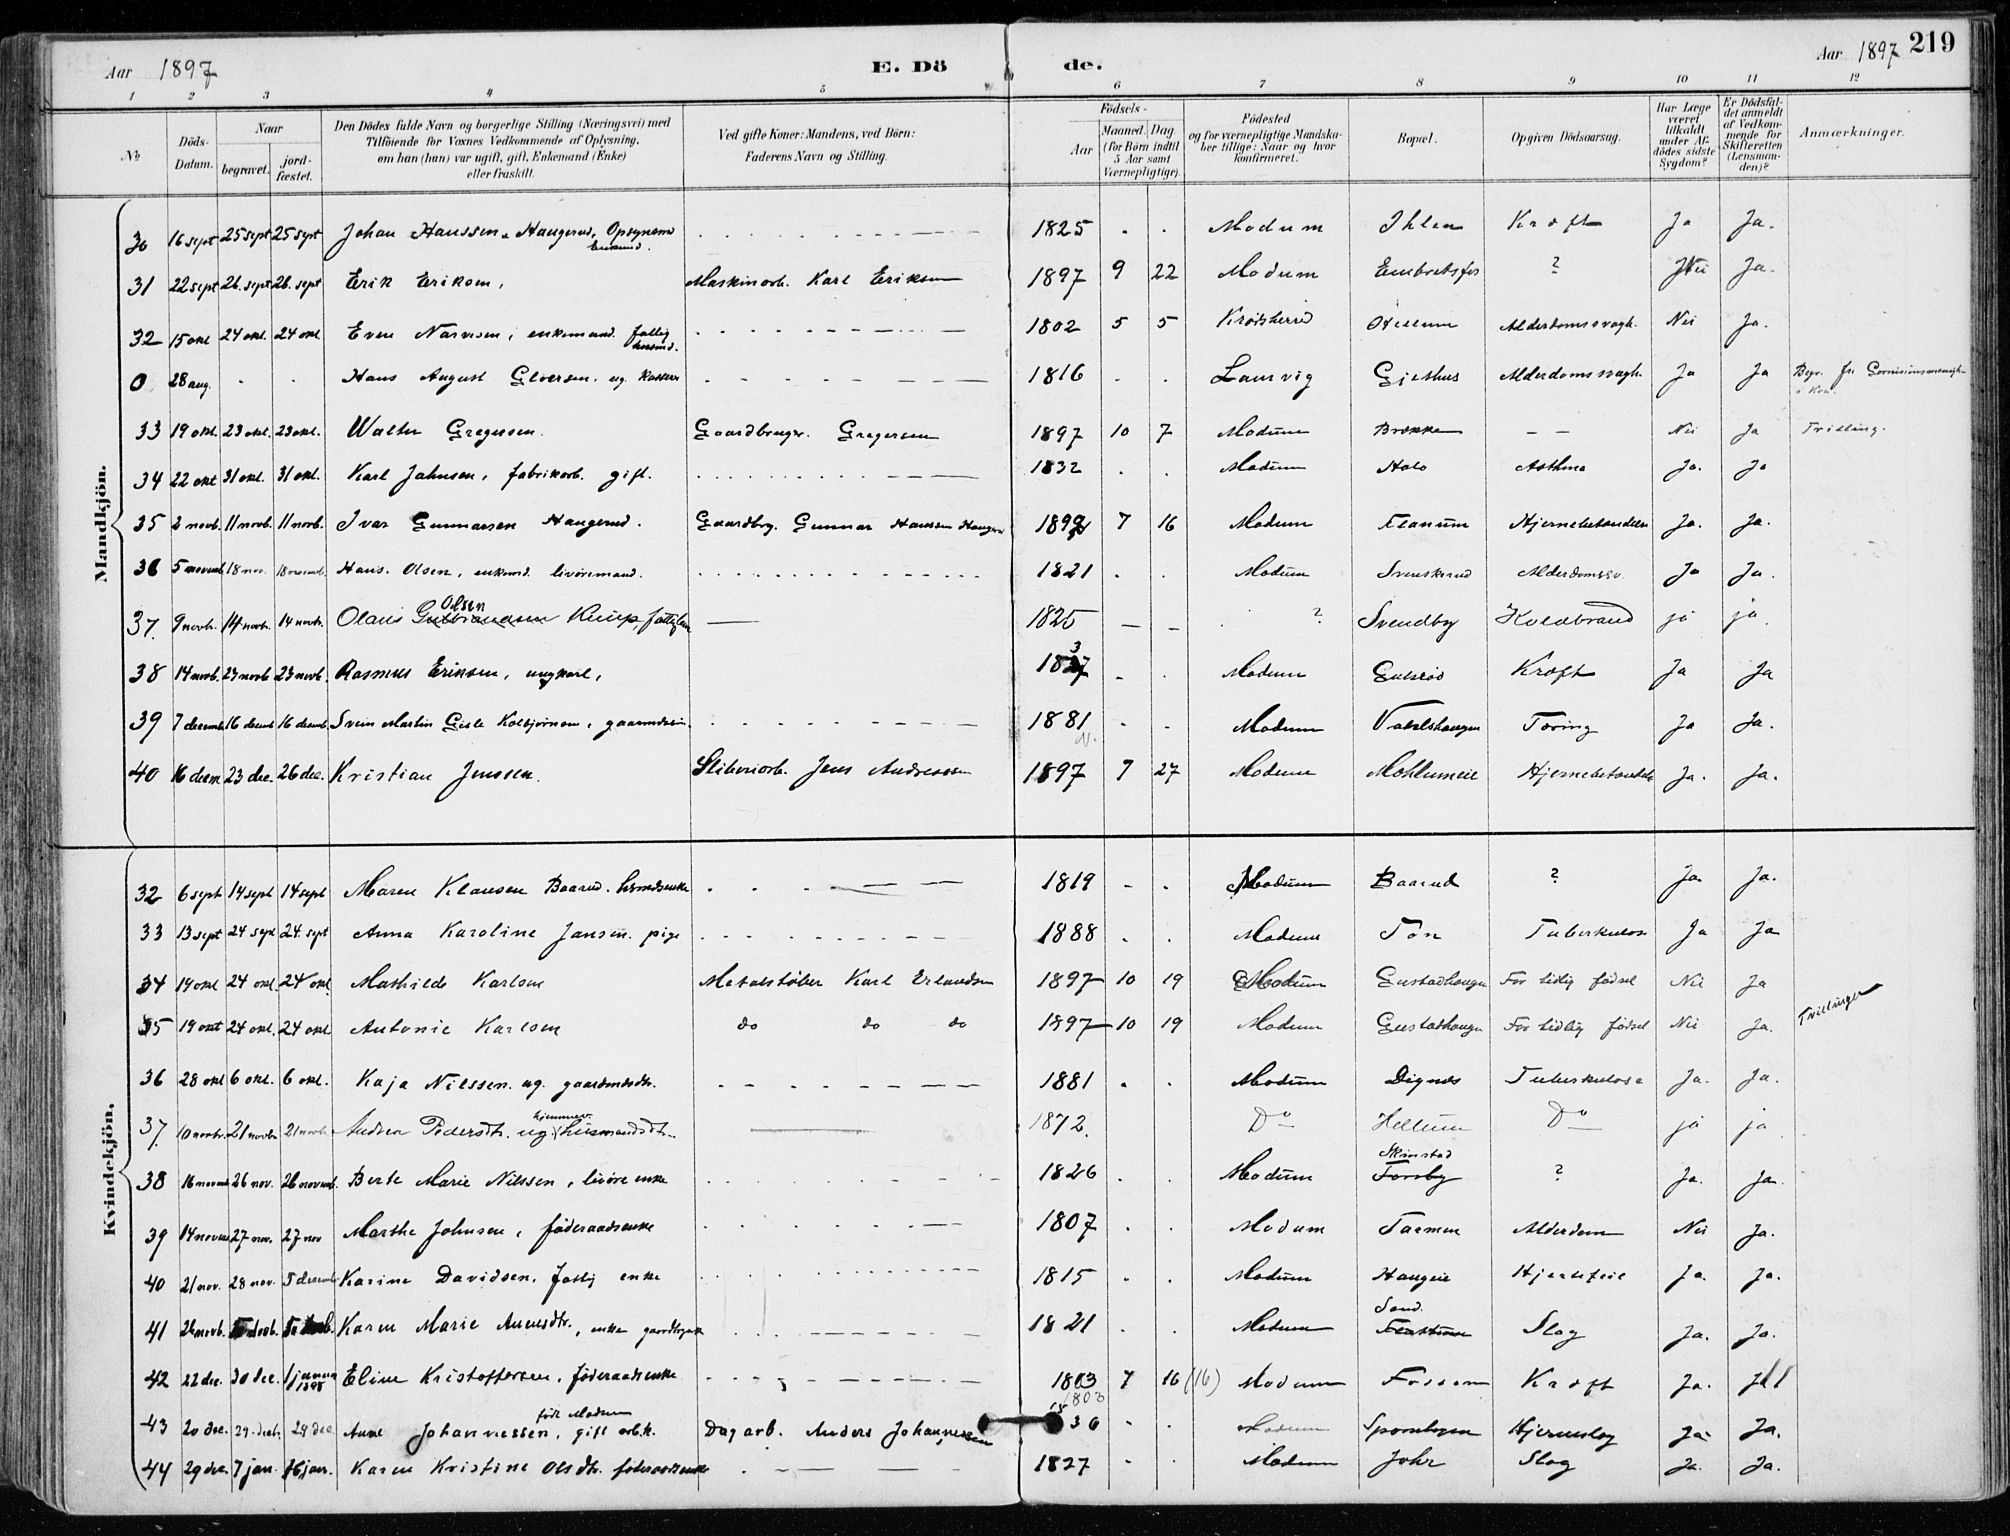 Aar 1897 E. Dö de. Aar 1897 219
1 2 3 4 5 6 7 8 9 10 11 12
№ Döds-Datum. Naar begravet. jord-fæstet. Den Dödes fulde Navn og borgerlige Stilling (Næringsvei) med Tilföiende for Voxnes Vedkommende af Oplysning, om han (hun) var ugift, gift, Enkemand (Enke) eller fraskilt. Ved gifte Koner: Mandens, ved Börn: Faderens Navn og Stilling. Födsels- Aar Maaned. Dag (for Børn indtil 5 Aar samt Værnepligtige). Födested og for værnepligtige Mandskaber tillige: Naar og hvor konfirmeret. Bopæl. Opgiven Dödsaarsag. Har Læge været tilkaldt under Afdödes sidste Sygdom? Er Dödsfaldet anmeldt af Vedkommende for Skifteretten (Lensmanden)? Anmærkninger.
Mandkjön.
30 16 sept 25 sept 25 sept Johan Hanssen Haugerud, Opsynsmd Enkemd. 1825 Modum Ihlen Kræft Ja Ja.
31 22 sept 26. sept 26. sept Erik Eriksen, Maskinarb. Karl Eriksen 1897 9 22 Modum Embretsfos ? Nei Ja.
32 15 okt 24 okt. 24 okt Even Narvesen, enkemand fattig 1802 5 5 Krødsherred Alderdomssvagh. Nei Ja.
0 28 aug. Hans August Gloersen. ug. 1816 Laurvig Gjethus Alderdomssvagh. Ja Ja Begr. fr.
33 19 okt. 23 okt. 23 okt. Walter Gregersen. Gaardbruger. Gregersen 1897 10 7 Modum Brekke Nei Ja Tvilling.
34 22 okt 31 okt. 31 okt. Karl Johnsen, fabrikarb. gift. 1832 Modum Asthma Ja. Ja
35 2 novb. 11 novb. 11 novb. Ivar Gunnarsen Haugerud. Gaardbrg. Gunnar Hanssen Haugerud 7 16 Modum Flanum Hjernebetændelse Ja. Ja.
36 5 novemb 18 nov. 18 novemb. Hans Olsen, enkemd. livøremand. 1821 Modum Svenskerud Alderdomssv. Ja Ja.
37. 9 novb. 14 novb. 14 novb. Olaus Gulbrandsen Olsen 1825 ? Svendby Koldbrand ja ja
38 14 novb. 23 novb 23 novb. Rasmus Eriksen, ungkarl, 1837 Modum Kræft Ja Ja
39 7 decemb 16 decemb 16 decemb. Svein Martin Gisle Kolbjørnsen, gaardmdssøn. 1881 Modum Tæring Ja Ja.
40 16 decm 23 dec. 26 dec. Kristian Jenssen. Sliberiarb. Jens Andreassen 1897 7 27 Modum Hjernebetændelse Ja. Ja.
Kvindekjön.
32 6 sept 14 sept 14 sept Maren Klausen Baarud. husmdsenke 1819 Modum Baarud ? Ja Ja.
33 13 sept 24 sept 24. sept Anna Karoline Jansen. pige 1888 Modum Tuberkulose Ja Ja
34 19 okt 24 okt. 24 okt. Mathilde Karlsen Metalstøber Karl Erlandsen 1897 10 19 Modum Gustadhaugen For tidlig fødsel Nei Ja
35 19 okt 24 okt. 24 okt Antonie Karlsen do do do 1897 10 19 Modum Gustadhaugen For tidlig fødsel Nei Ja. Tvillinger
36 28 okt 6 okt. 6 okt. Kaja Nilssen. ug. gaardmdsdtr. 1881 Modum Dignes Tuberkulose Ja. Ja.
37. 10 novbr. 21 novbr 21 novb. Andrea Pedersdtr. ug. hjemmev. husmandsdtr. 1872. Do Hellum Do ja ja
38 16 novemb 26 nov. 26 novemb. Berte Marie Nilssen, livøreenke 1826 Modum Skinstad Forsby ? Ja. Ja.
39 14 novemb 27 nov. 27 nov Marthe Johnsen, føderaadsenke 1807 Modum Alderdom Nei Ja.
40 21 nov. 28 nov. 5 decemb Karine Davidsen. fattig enke 1815 Modum Haugeie Hjertefeil Ja. Ja.
41 26 novb. Karen Marie Amundsdtr., enke 1821 Modum Sand. Slag Ja. Ja.
42 22 dec. 30 dec. 1 januar 1898 Eline Kristoffersen, føderaadsenke 1803 7 16 (16) Modum Fossum Kræft Ja. Ja
1803
43 20 dec. 29. decb. 29 dec Anne Johannessen, født Modum gift arb.k. Dagarb. Anders Johannessen 36 Modum Hjerneslag Ja Ja.
44 29 dec. 7 jan. 16 jan. Karen Kristine Olsdtr. føderaadsenke 1827 Modum Johr Slag Ja. Ja.